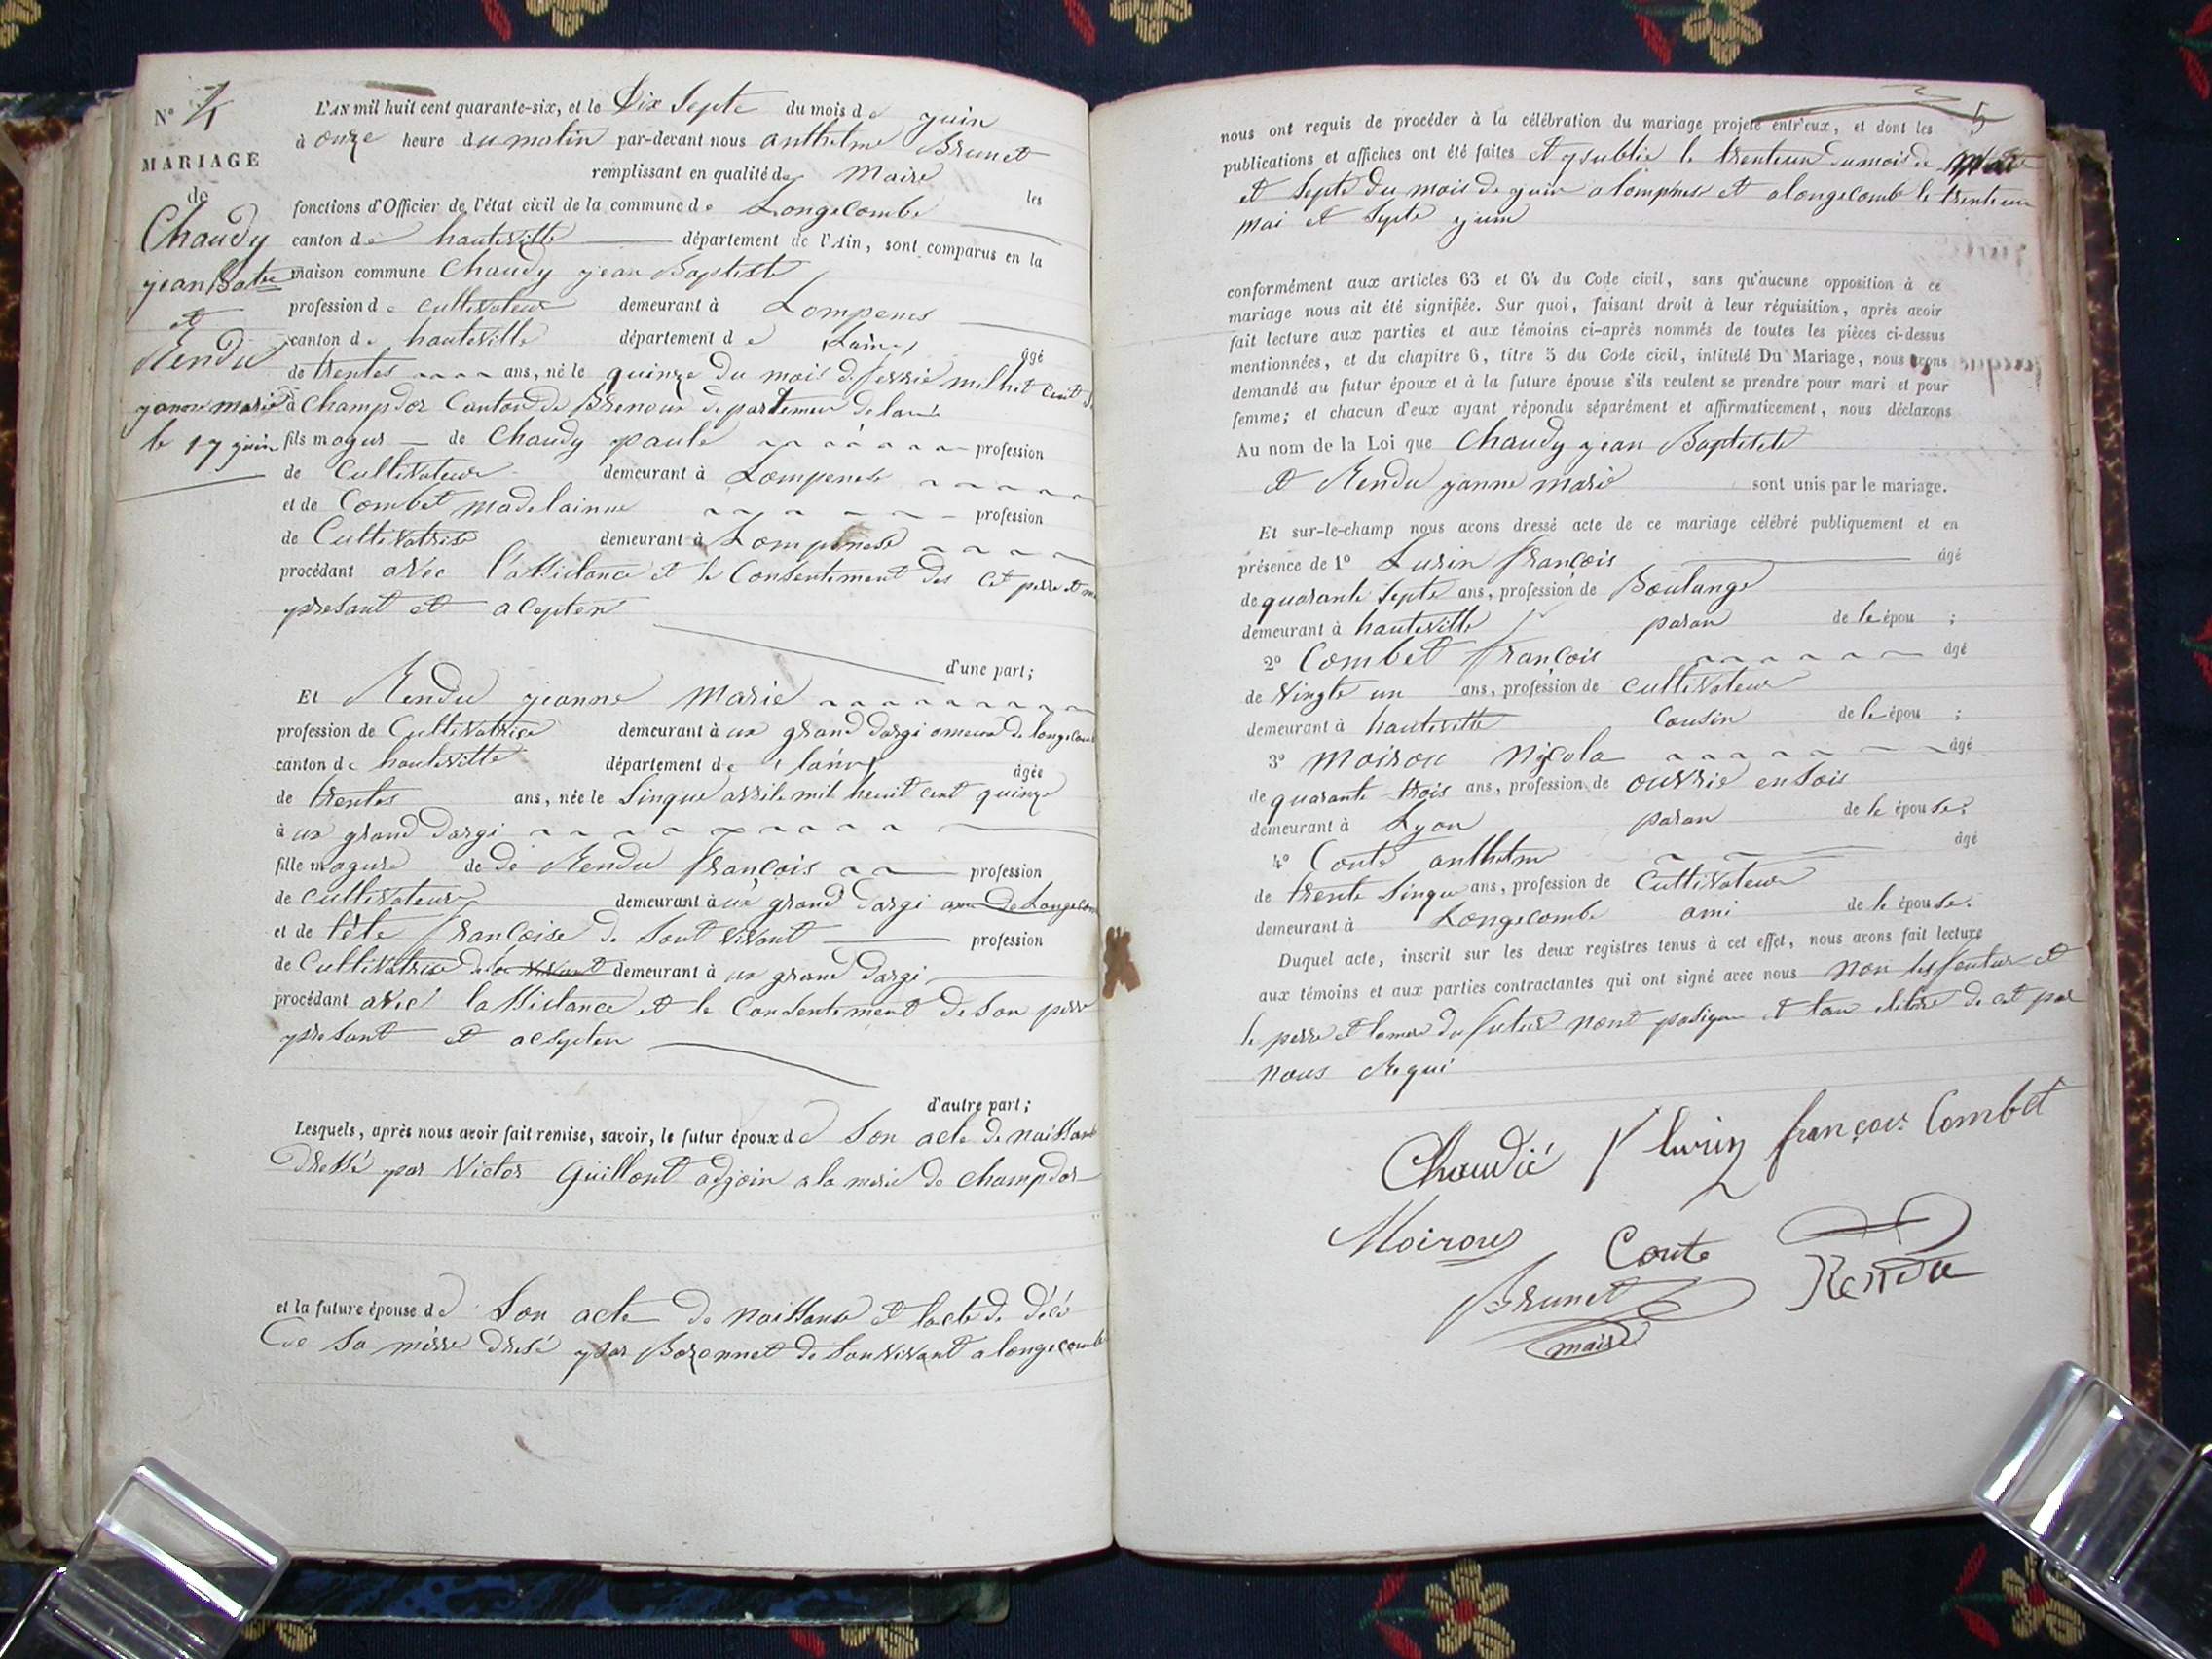 N° 4
MARIAGE
de
Chaudy
jean Batte
et
Rendu
janne marie
le 17 juin
L'AN mil huit cent quarante-six, et le Dix Septe du mois de juin
à onze heure du matin par-devant nous anthelme Brunet
remplissant en qualité de Maire les
fonctions d'Officier de l'état civil de la commune de Longecombe
canton de hauteville département de l'Ain, sont comparus en la
maison commune Chaudy jean Baptiste
profession de cultivateur demeurant à Lompenes
canton de hauteville département de Lain âgé
de trentes ans, né le quinze du mois de fevrié mil huit cent
à Champdor Canton de Brenoux departemen de lain
fils magur de Chaudy paule profession
de Cultivateur demeurant à Lompenes
et de Combet madelainne profession
de Cultivatrise demeurant à Lompenese
procédant avec l'assistance et le Consentement des cet perre et
presant et acepten
d'une part;
Et Rendu jeanne Marie
profession de Cultivatrise demeurant à un grand Dargi de longecombe
canton de hauteville département de lain âgée
de trentes ans, née le Sinque avrile mil heuit cent quinze
à un grand Dargi
fille magure de de Rendu françois profession
de Cultivateur demeurant à un grand Dargi
et de téte françoise de Sont vivant profession
de Cultivatrise demeurant à un grand Dargi
procédant avec lassistance et le Consentement de Son perre
presant et acepten
d'autre part;
Lesquels, après nous avoir fait remise, savoir, le futur époux de Son acte de naissance
Dressé par Victor Guillont adjoin a la merie de Champdor
et la future épouse de Son acte de naissance et lacte de décé
De Sa mérre Dresé par Bozonnet de Son vivant a longecombe
5
nous ont requis de procéder à la célébration du mariage projeté entr'eux, et dont les
publications et affiches ont été faites et publie le trenteun du mois de Mai
et Septe du mois de juin a lompnes et a longecomb le trenteun
mai et Septe juin
conformément aux articles 63 et 64 du Code civil, sans qu'aucune opposition à ce
mariage nous ait été signifiée. Sur quoi, faisant droit à leur réquisition, après avoir
fait lecture aux parties et aux témoins ci-après nommés de toutes les pièces ci-dessus
mentionnées, et du chapitre 6, titre 5 du Code civil, intitulé Du Mariage, nous avons
demandé au futur époux et à la future épouse s'ils veulent se prendre pour mari et pour
femme; et chacun d'eux ayant répondu séparément et affirmativement, nous déclarons
Au nom de la Loi que Chaudy jean Baptiste
et Rendu janne marie sont unis par le mariage.
Et sur-le-champ nous avons dressé acte de ce mariage célébré publiquement et en
présence de 1° Lurin françois âgé
de quarante Septe ans, profession de Boulange
demeurant à hauteville paran de le épou ;
2° Combet françois âgé
de Vingte un ans, profession de cultivateur
demeurant à hauteville cousin de le épou ;
3° Moirou Nicola âgé
de quarante trois ans, profession de ouvrié en Sois
demeurant à Lyon paran de le épouse.
4° Conte anthelme âgé
de trente Sinque ans, profession de Cultivateur
demeurant à Longecombe ami de le épouse.
Duquel acte, inscrit sur les deux registres tenus à cet effet, nous avons fait lecture
aux témoins et aux parties contractantes qui ont signé avec nous non les feutur et
le perre et la mere du futur nont
nous Requi
Chaudié f lurin françois Combet
Moiroux Conte Rendu
Brunet
maire